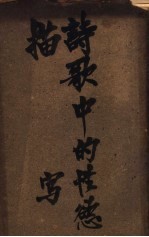 詩歌中的性慾
描写